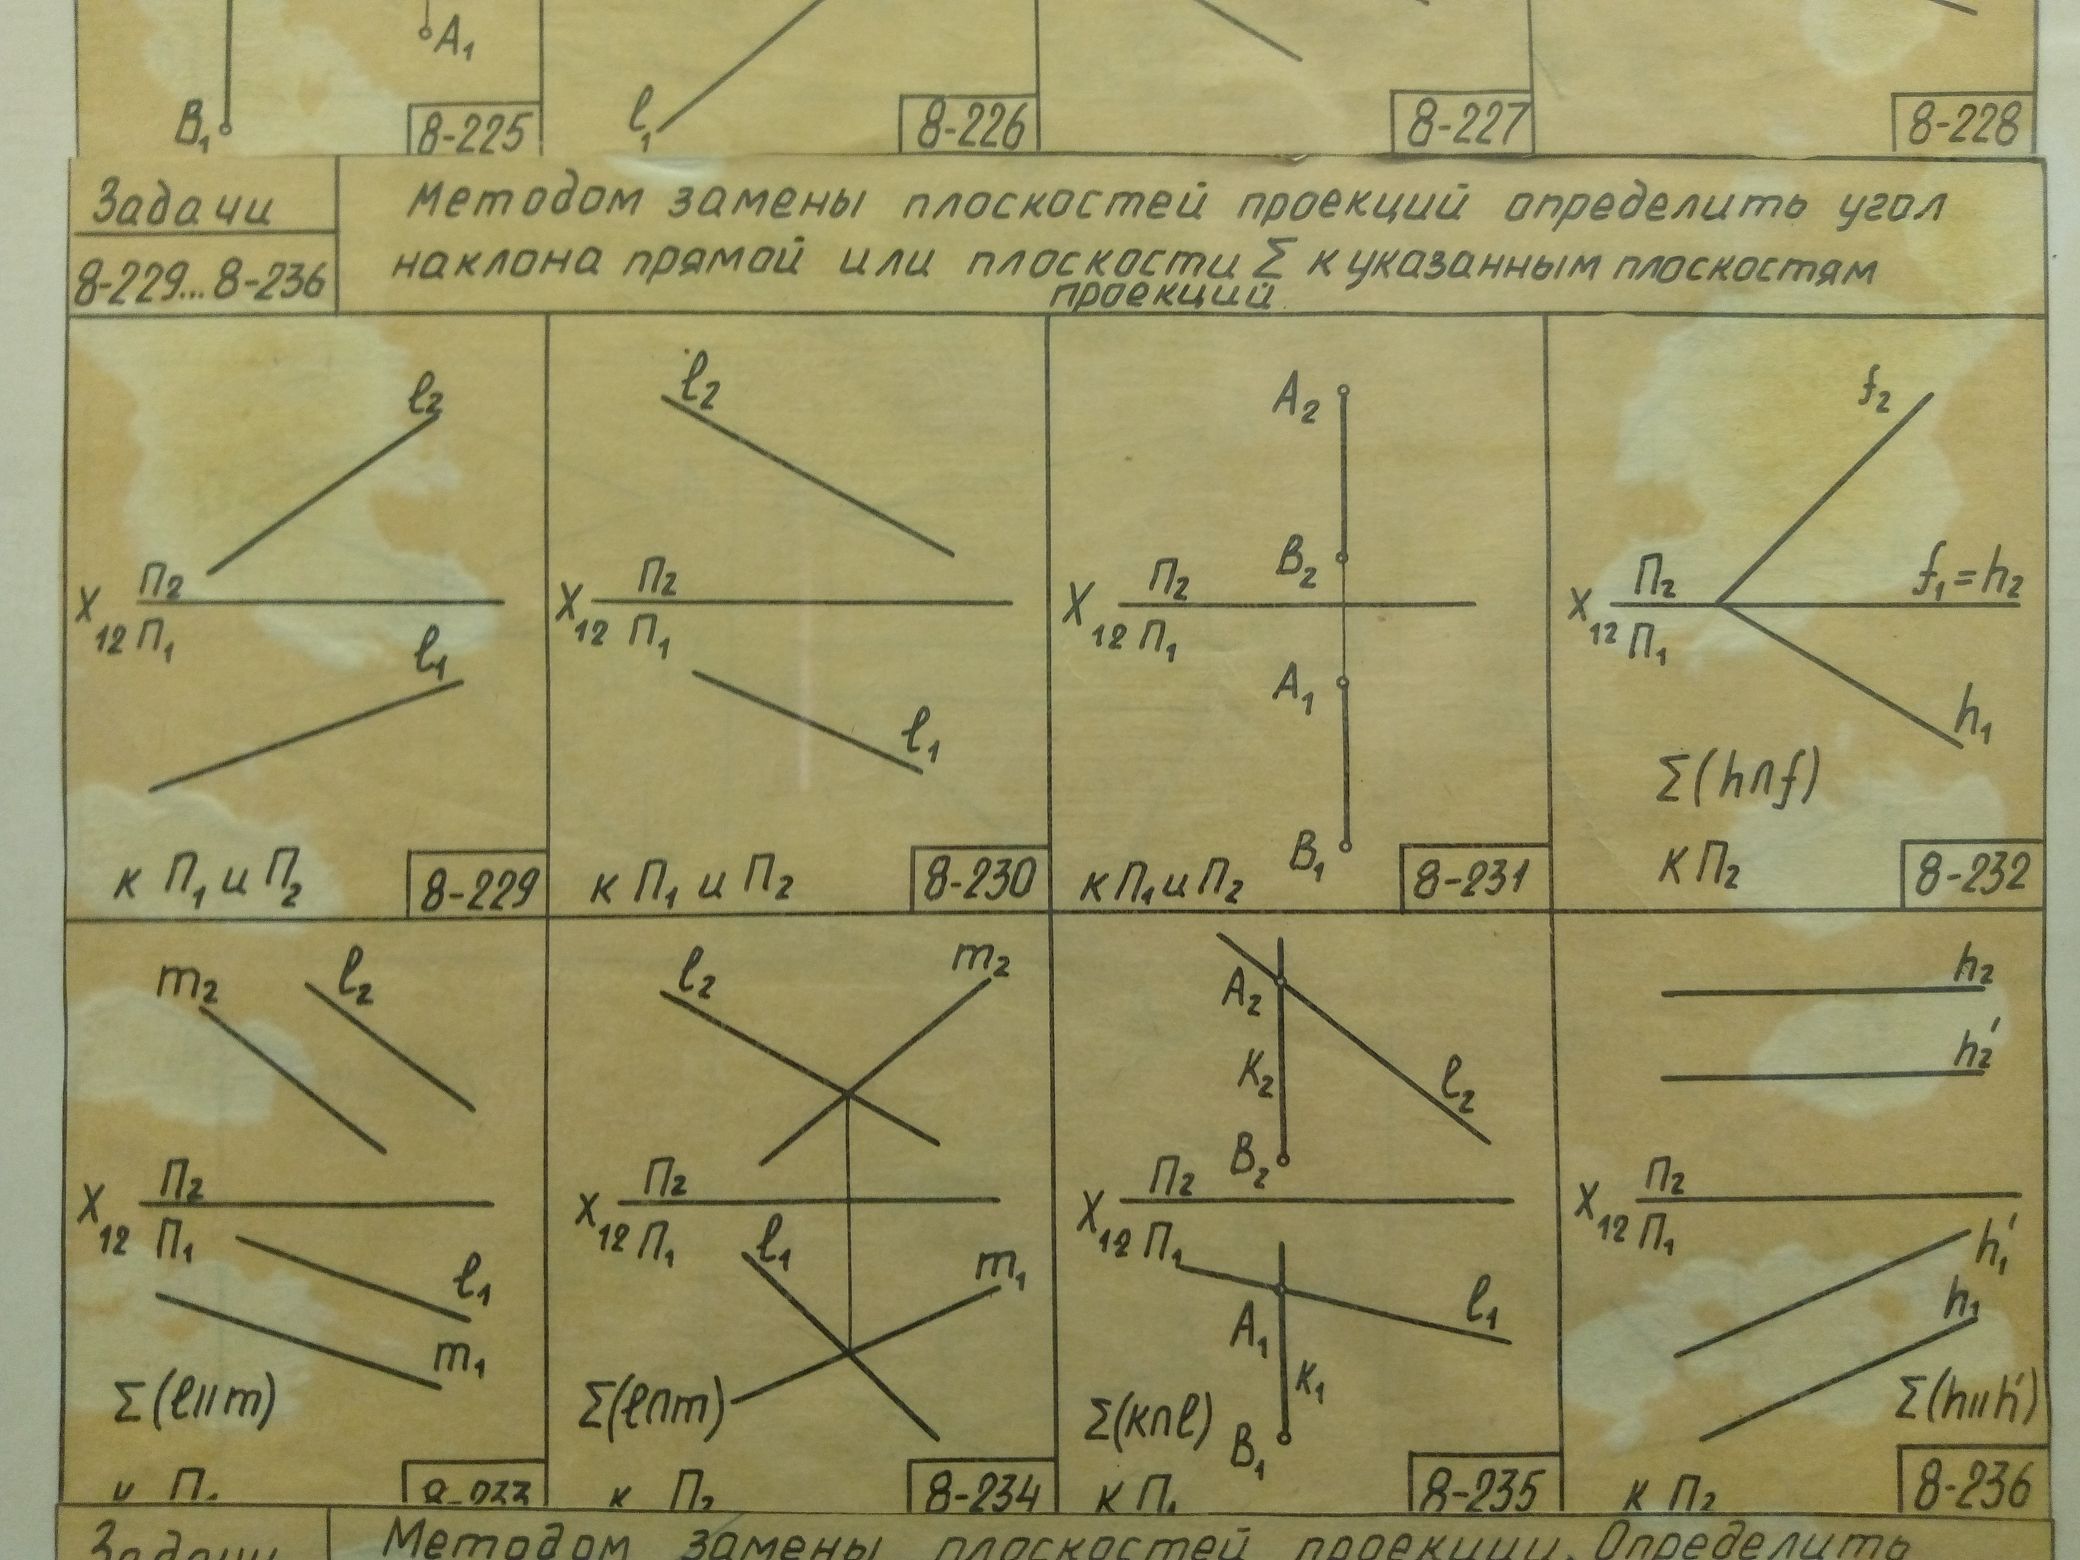 A₁
B₁
8-225
l₁
8-226
8-227
8-228
Задачи
8-229...8-236
Методом замены плоскостей проекций определить угол
наклона прямой или плоскости Σ к указанным плоскостям
проекций
l₂
X₁₂ П₂
П₁
l₁
к П₁ и П₂
8-229
l₂
X₁₂ П₂
П₁
l₁
к П₁ и П₂
8-230
A₂
B₂
X₁₂ П₂
П₁
A₁
B₁
к П₁ и П₂
8-231
f₂
X₁₂ П₂
П₁
f₁=h₂
h₁
Σ(h∩f)
К П₂
8-232
m₂
l₂
X₁₂ П₂
П₁
l₁
m₁
Σ(l∥m)
к П₁
8-233
l₂
m₂
X₁₂ П₂
П₁
l₁
m₁
Σ(l∩m)
к П₂
8-234
A₂
K₂
l₂
B₂
X₁₂ П₂
П₁
l₁
A₁
K₁
Σ(к∩l)
B₁
к П₁
8-235
h₂
h₂'
X₁₂ П₂
П₁
h₁'
h₁
Σ(h∥h')
к П₂
8-236
Задачи
Методом замены плоскостей проекции. Определить